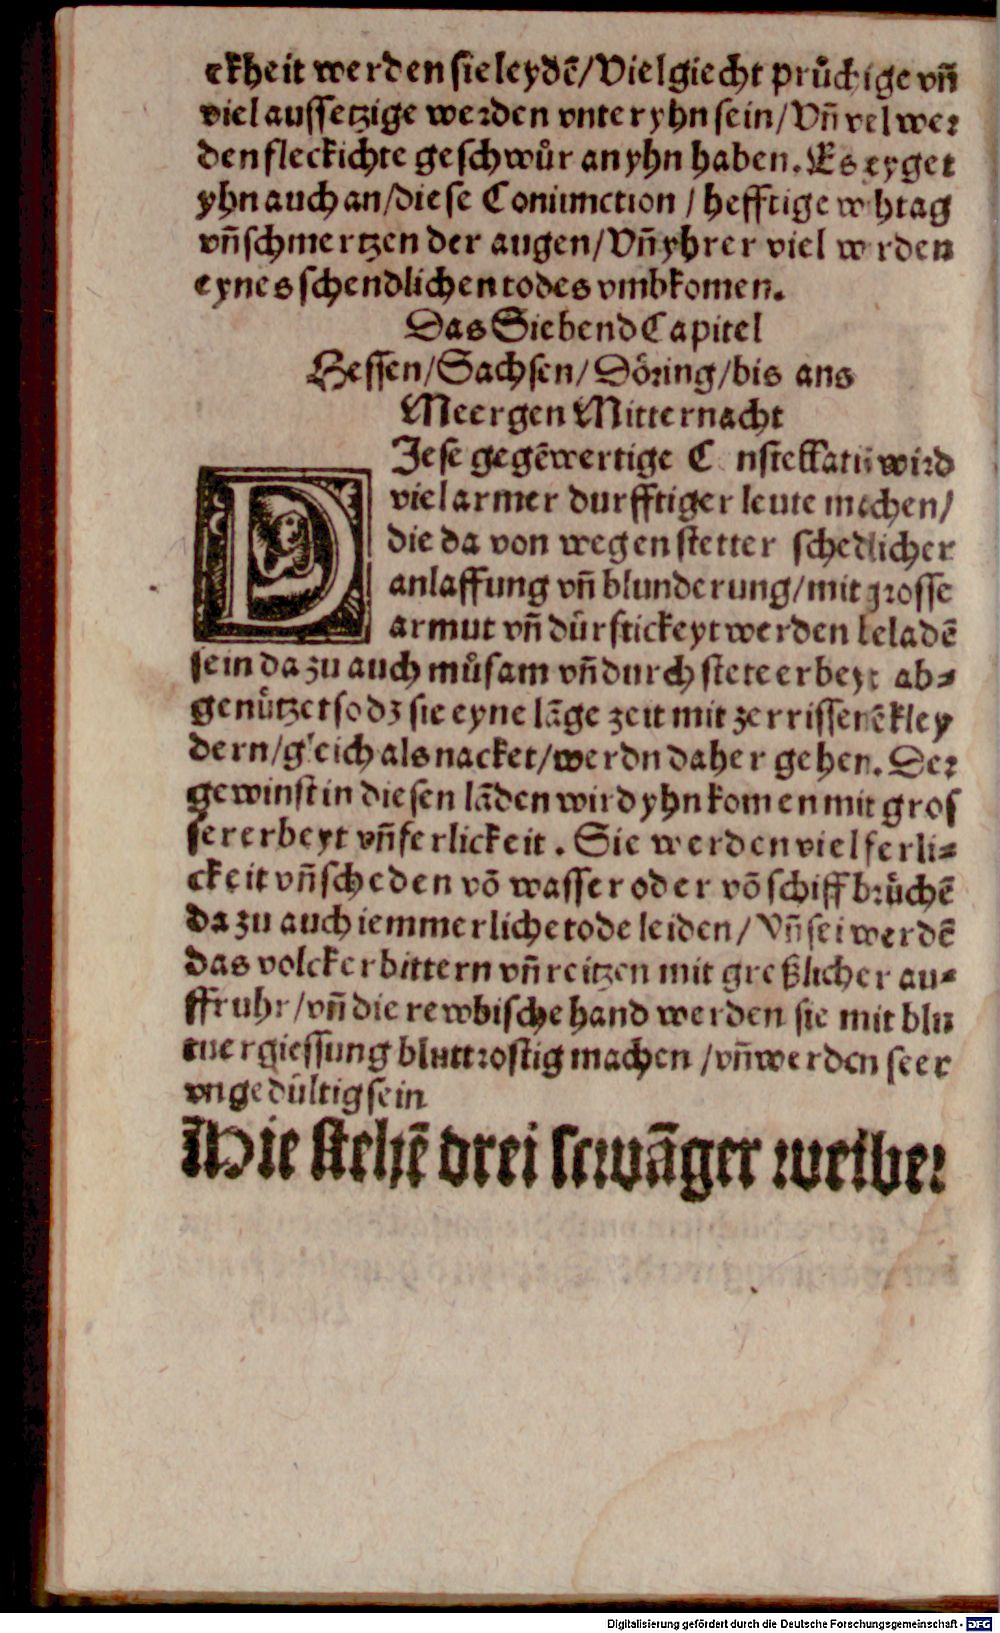 ckheit werden sie leydē/Viel giecht průchige vn̄
viel aussetzige werden vnter yhn sein/Vn̄ vel wer
den fleckichte geschwůr an yhn haben. Es eyget
yhn auch an/diese Coniunction/hefftige w htag
vn̄ schmertzen der augen/Vn̄ yhrer viel w rden
eynes schendlichen todes vmbkomen.
Das Siebend Capitel
Hessen/Sachsen/Döring/bis ans
Meer gen Mitternacht
DIese gegēwertige C nstellatiō wird
viel armer durfftiger leute machen/
die da von wegen stetter schedlicher
anlaffung vn̄ blunderung/mit grosse
armut vn̄ dürftickeyt werden beladē
sein da zu auch můsam vn̄ durch stete erbeyt ab⸗
genützet so dz sie eyne lāge zeit mit zerrissenē kley
dern/gleich als nacket/werdn daher gehen. Der
gewinst in diesen lāden wird yhn komen mit gros
ser erbeyt vn̄ ferlickeit. Sie werden viel ferli⸗
ckeit vn̄ scheden vō wasser oder vō schiffbrüchē
da zu auch iemmerliche tode leiden/Vn̄ sei werdē
das volck erbittern vn̄ reitzen mit greßlicher au⸗
ffruhr/vn̄ die rewbische hand werden sie mit blu
tuergiessung bluttrostig machen/vn̄ werden seer
vngedültig sein
Hie stehē drei scwāger weiber
Digitalisierung gefördert durch die Deutsche Forschungsgemeinschaft - DFG